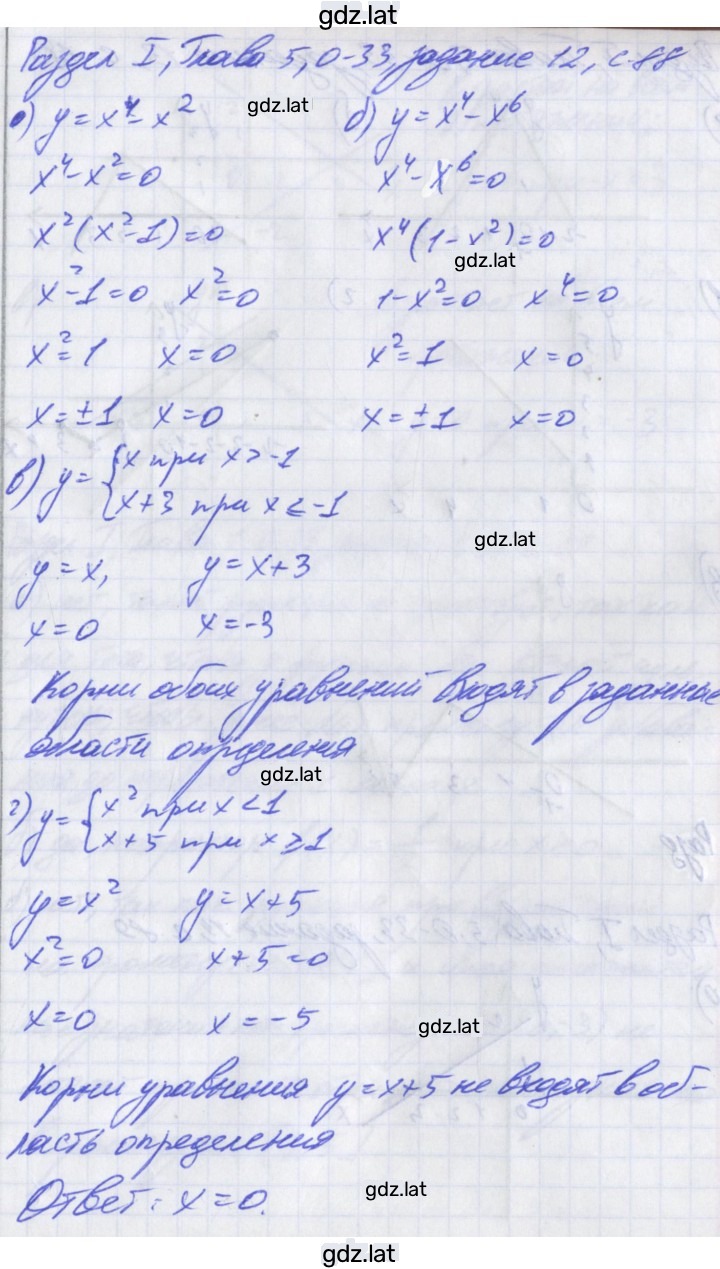 gdz.lat
Раздел I, Глава 5, О-33, задание 12, с 88
а) y = x⁴ - x² gdz.lat б) y = x⁴ - x⁶
x⁴ - x² = 0 x⁴ - x⁶ = 0
x²(x² - 1) = 0 x⁴(1 - x²) = 0
gdz.lat
x² - 1 = 0 x² = 0 1 - x² = 0 x⁴ = 0
x² = 1 x = 0 x² = 1 x = 0
x = ±1 x = 0 x = ±1 x = 0
в) y = { x при x > -1
x + 3 при x ≤ -1
gdz.lat
y = x, y = x + 3
x = 0 x = -3
Корни обоих уравнений входят в заданные
области определения
gdz.lat
г) y = { x² при x < 1
x + 5 при x ≥ 1
y = x² y = x + 5
x² = 0 x + 5 = 0
x = 0 x = -5
gdz.lat
Корни уравнения y = x + 5 не входят в об-
ласть определения
Ответ: x = 0.
gdz.lat
gdz.lat